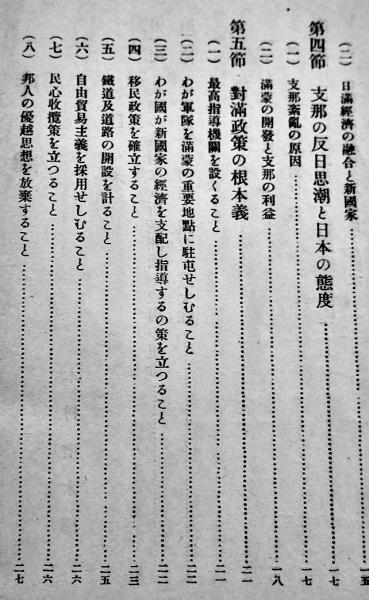 (二) 日滿經濟の融合と新國家……一五
第四節 支那の反日思潮と日本の態度……一七
(一) 支那紊亂の原因……一七
(二) 滿蒙の開發と支那の利益……一八
第五節 對滿政策の根本義……二一
(一) 最高指導機關を設くること……二一
(二) わが軍隊を滿蒙の重要地點に駐屯せしむること……二二
(三) わが國が新國家の經濟を支配し指導するの策を立つること……二二
(四) 移民政策を確立すること……二三
(五) 鐵道及道路の開設を計ること……二五
(六) 自由貿易主義を採用せしむること……二六
(七) 民心收攬策を立つること……二六
(八) 邦人の優越思想を放棄すること……二七